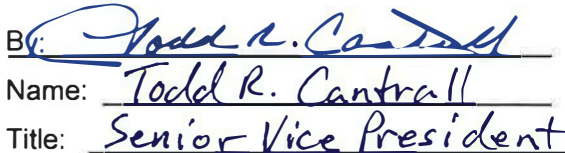 By: Todd R. Cantrall
Name: Todd R. Cantrall
Title: Senior Vice President